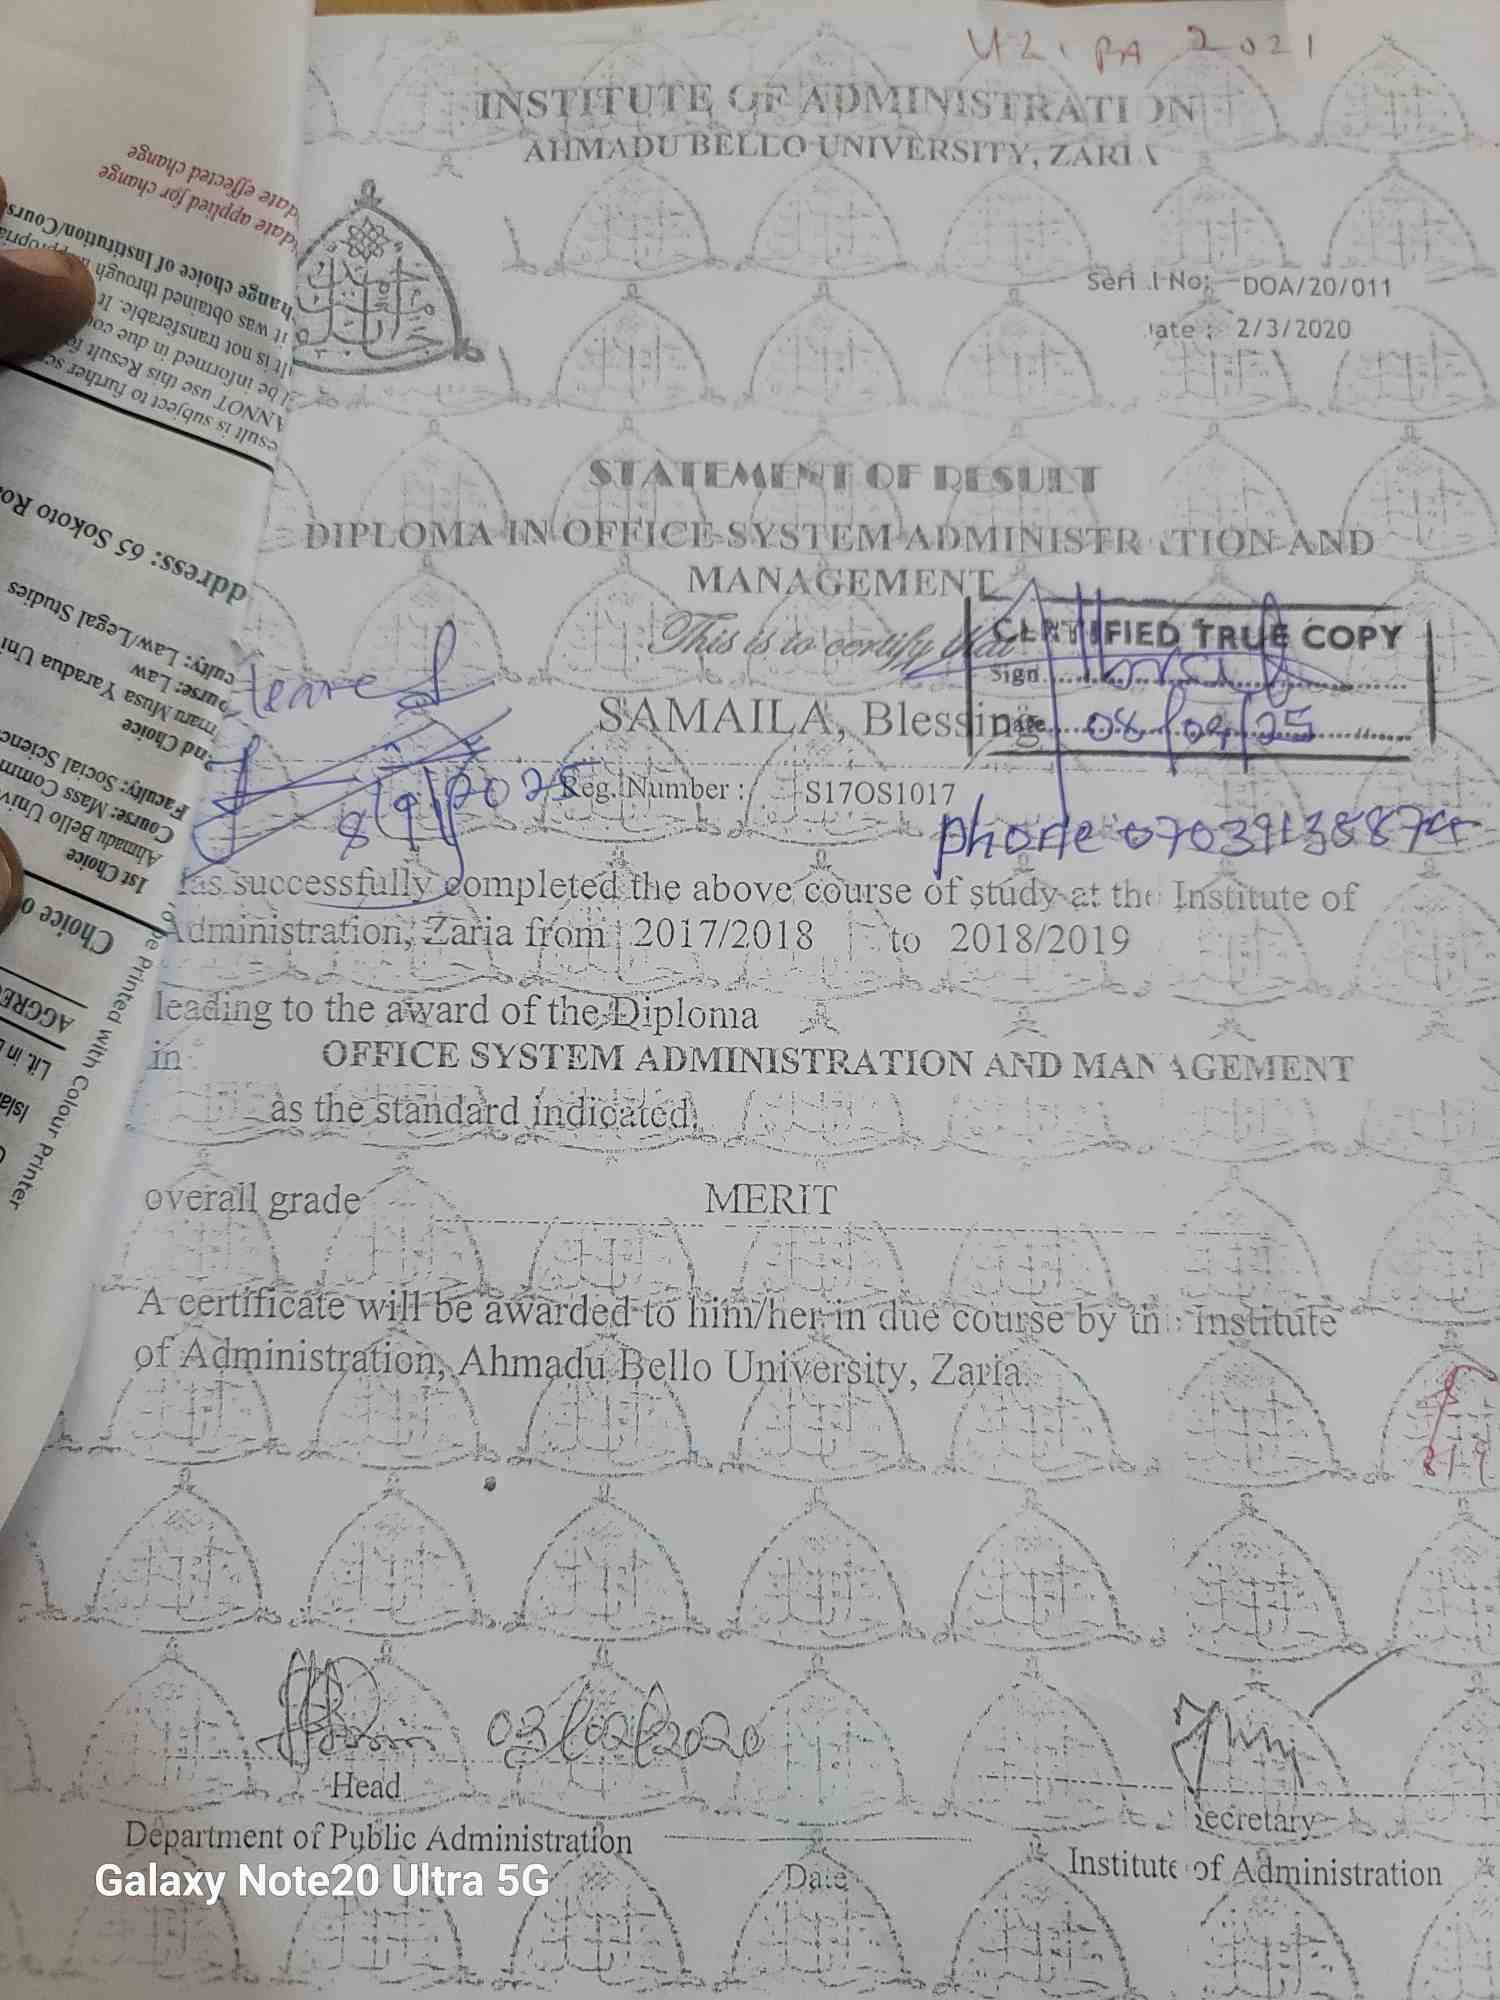 U21 PA 2021
INSTITUTE OF ADMINISTRATION
AHMADU BELLO UNIVERSITY, ZARIA
Serial No: DOA/20/011
Date: 2/3/2020
STATEMENT OF RESULT
DIPLOMA IN OFFICE SYSTEM ADMINISTRATION AND
MANAGEMENT
This is to certify that
CERTIFIED TRUE COPY
Sign
Date 08/09/25
SAMAILA, Blessing
8/9/2025
Reg. Number : S17OS1017
phone
has successfully completed the above course of study at the Institute of
Administration, Zaria from 2017/2018 to 2018/2019
leading to the award of the Diploma
in OFFICE SYSTEM ADMINISTRATION AND MANAGEMENT
as the standard indicated
overall grade MERIT
A certificate will be awarded to him/her in due course by the Institute
of Administration, Ahmadu Bello University, Zaria.
8/9
03/02/2020
Head
Department of Public Administration
Date
Secretary
Institute of Administration
date effected change
date applied for change
change choice of Institution/Cours
it was obtained through
It is not transferable. It
be informed in due cou
ANNOT use this Result
esult is subject to further sc
ddress: 65 Sokoto Roa
culty: Law/Legal Studies
ourse: Law
maru Musa Yaradua Uni
2nd Choice
Faculty: Social Scienc
Course: Mass Comm
Ahmadu Bello Univ
1st Choice
Choice o
AGGREG
Lit. in
Isla
be Printed with Colour Printer
Galaxy Note20 Ultra 5G